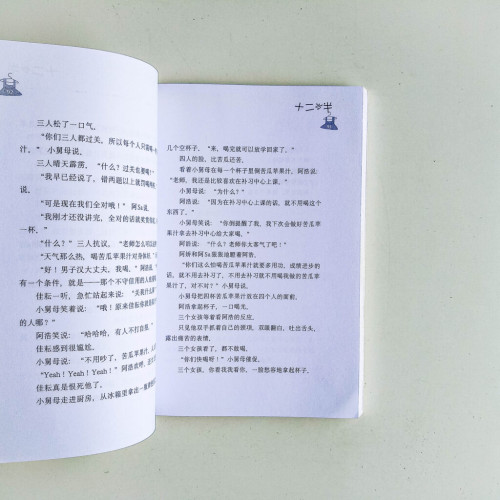 十二岁
三人松了一口气。
“你们三人都过关，所以每个人只需喝一
汁。”小舅母说。
三人晴天霹雳，“什么？过关也要喝？”
“我早已经说了，错两题以上就罚喝两
说。
“可是现在我们全对哦！”阿Sa说。
“我刚才还没讲完，全对的话就奖赏
一杯。”
“什么？”三人抗议，“老师怎么可以
“天气那么热，喝苦瓜苹果汁对身体
“好！男子汉大丈夫，我喝。”阿浩说，
有一个条件，就是——那个不守信用的人
佳耘一听，急忙站起来说：“天
小舅母笑着说：“哦！原来佳耘你
的人哪？”
阿浩笑说：“哈哈哈，有人不打自招。”
佳耘感到很尴尬。
小舅母说：“不用吵了，苦瓜苹果汁，人
“Yeah！Yeah！Yeah！”阿浩欢呼，
佳耘真是恨死他了。
小舅母走进厨房，从冰箱里拿出一
十二岁半
几个空杯子，“来，喝完就可以放学回家了。”
四人的脸，比苦瓜还苦。
看着小舅母在每一个杯子里倒苦瓜苹果汁，阿浩说：
“老师，我还是比较喜欢在补习中心上课。”
小舅母说：“为什么？”
阿浩说：“因为在补习中心上课的话，就不用喝这个
东西了。”
小舅母笑说：“你倒提醒了我，我下次会做好苦瓜苹
果汁拿去补习中心给大家喝。”
阿浩说：“什么？老师你太客气了吧！”
阿娇和阿Sa张张地瞪着阿浩。
“你们这么怕喝苦瓜苹果汁就要多用功，成绩进步的
话，就不用去补习了，不用去补习就不用喝我做的苦瓜苹
果汁了，对不对？”小舅母说。
小舅母把四杯苦瓜苹果汁放在四个人的面前。
阿浩拿起杯子，一口喝光。
三个女孩等着看阿浩的反应。
只见他双手抓着自己的颈项，双眼翻白，吐出舌头，
露出痛苦的表情。
三个女孩看了，都不敢喝。
“你们快喝呀！”小舅母催促。
三个女孩，你看我我看你，一脸愁容地拿起杯子。